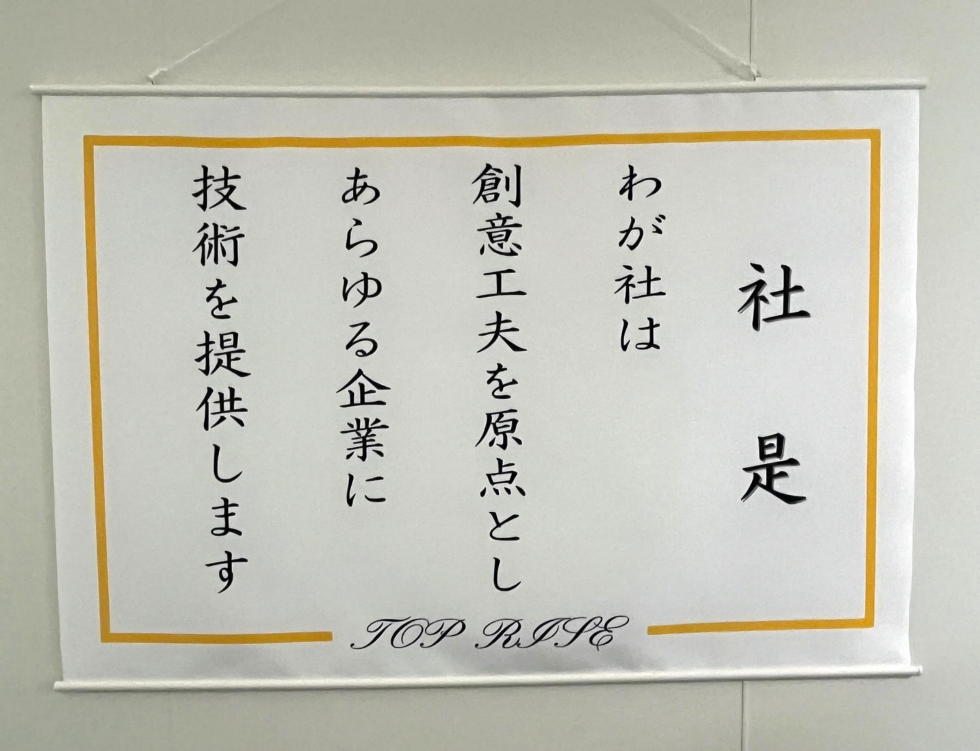 社是
わが社は
創意工夫を原点とし
あらゆる企業に
技術を提供します
TOP RISE